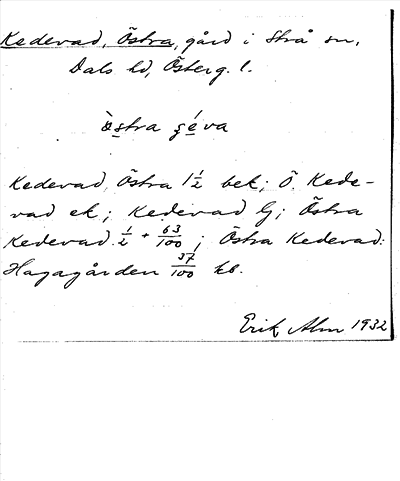 Kedevad, Östra, gård i Strå sn,
Dals hd, Österg. l.
östra ʒéva
Kedevad, Östra 1 1/2 bek; Ö. Kede-
vad ek; Kedevad G; Östra
Kedevad. 1/2 + 63/100; Östra Kedevad:
Hagagården 37/100 kb.
Erik Alm 1932